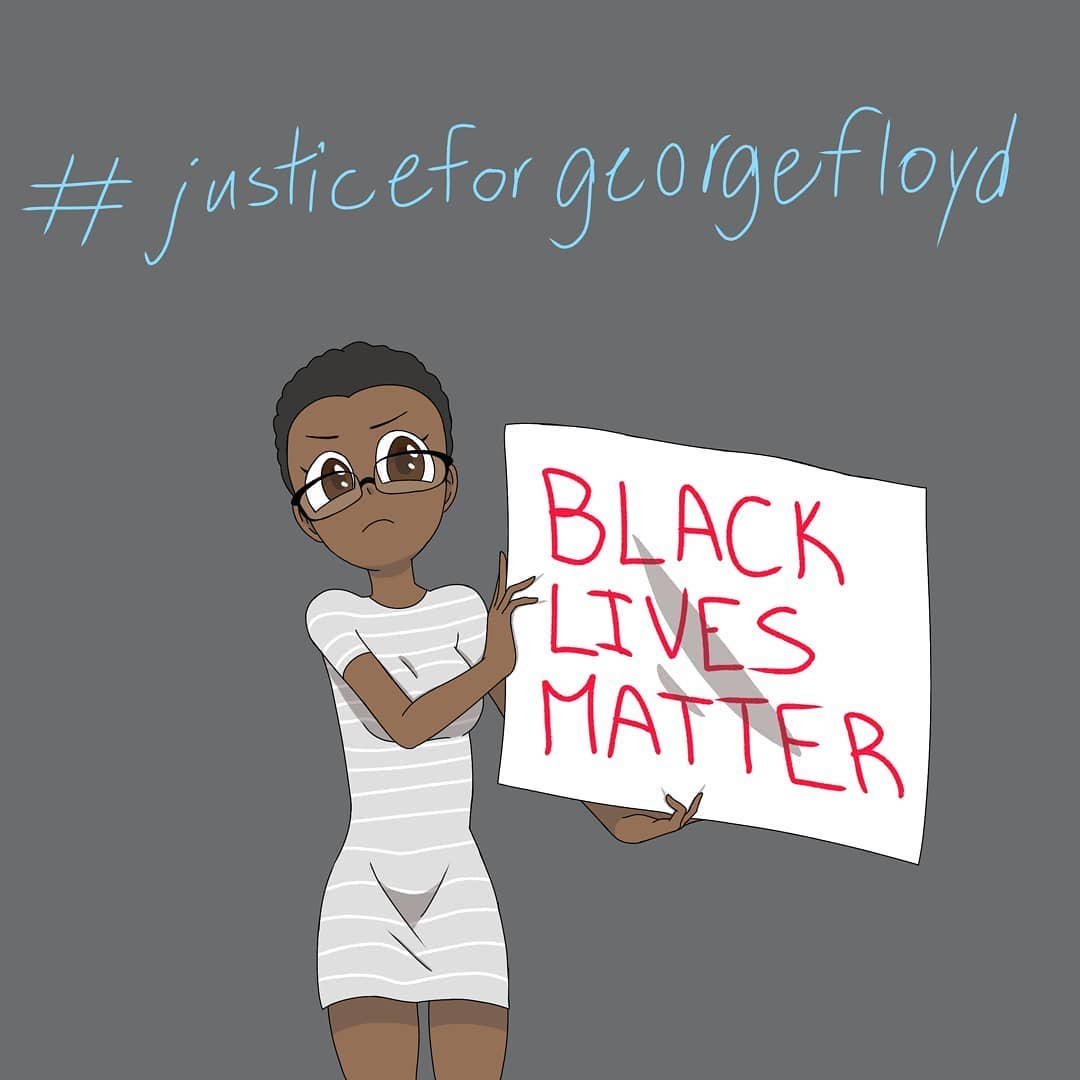 #justiceforgeorgefloyd
BLACK
LIVES
MATTER